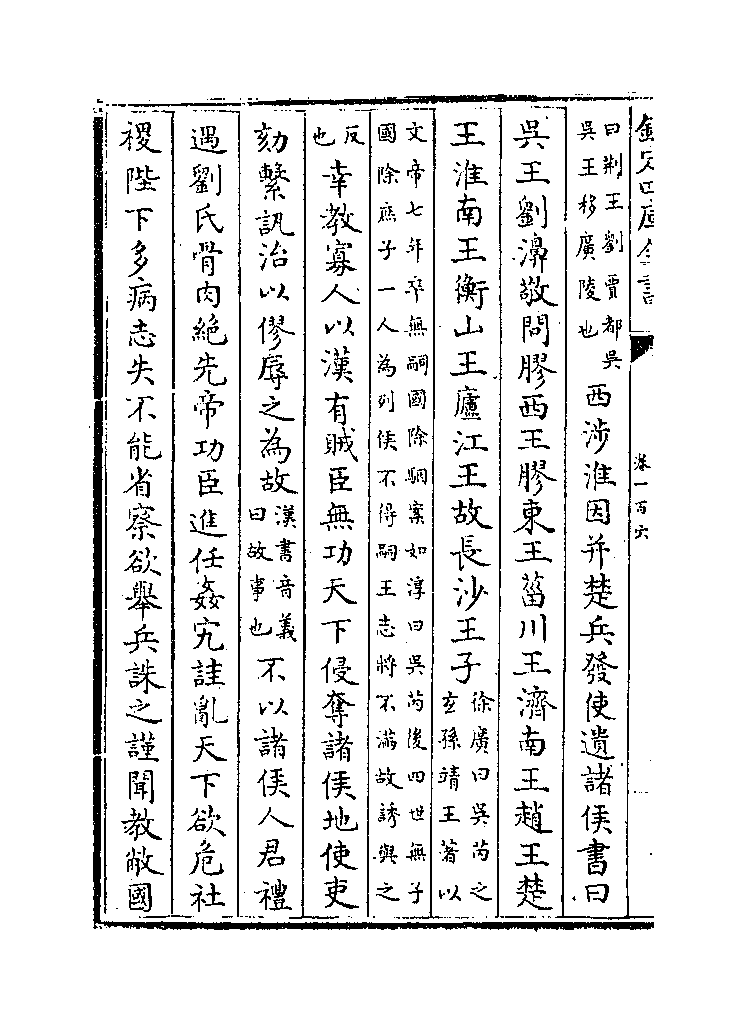 欽定四庫全書
卷一百六
曰荆王劉賈都吳
吳王移廣陵也
西涉淮因并楚兵發使遺諸侯書曰
吳王劉濞敬問膠西王膠東王菑川王濟南王趙王楚
王淮南王衡山王廬江王故長沙王子
徐廣曰吳芮之
玄孫靖王著以
文帝七年卒無嗣國除駰案如淳曰吳芮後四世無子
國除庶子一人為列侯不得嗣王志將不滿故誘與之
反
也
幸教寡人以漢有賊臣無功天下侵奪諸侯地使吏
劾繫訊治以僇辱之為故
漢書音義
曰故事也
不以諸侯人君禮
遇劉氏骨肉絶先帝功臣進任姦宄詿亂天下欲危社
稷陛下多病志失不能省察欲舉兵誅之謹聞教敝國